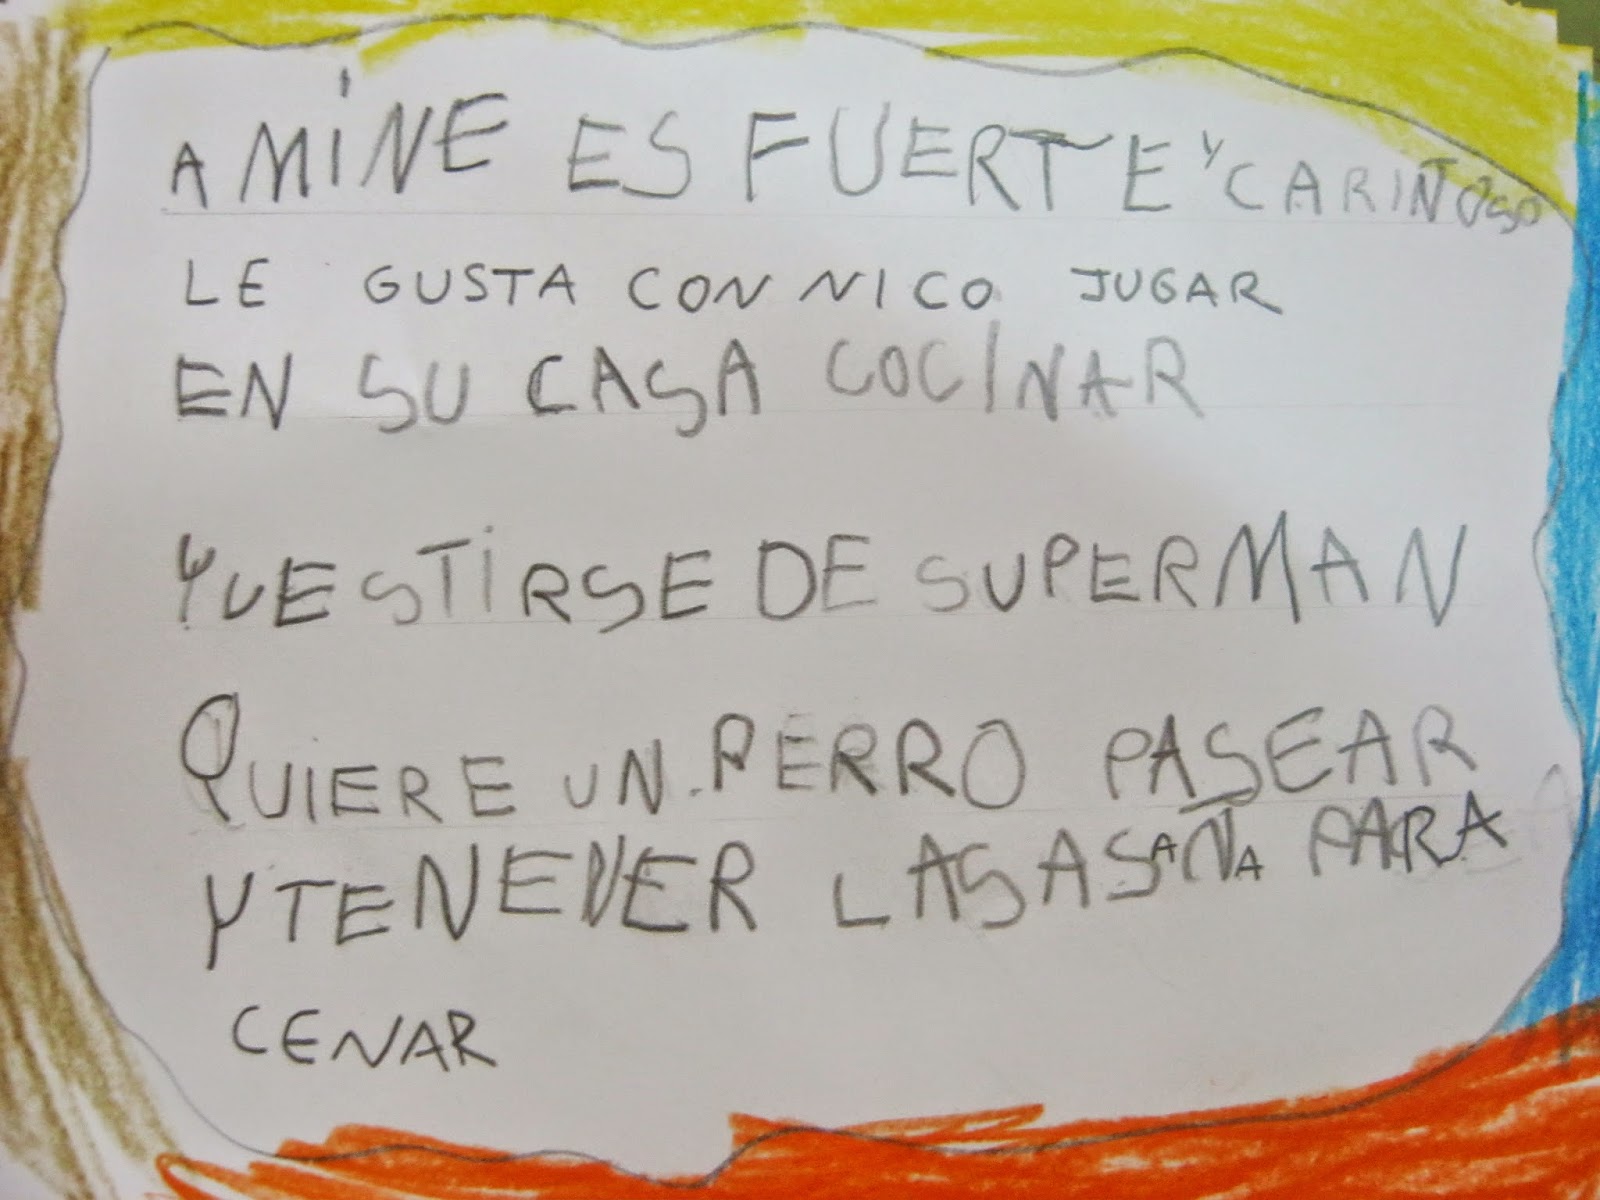 AMiNE ES FUERTE Y CARIÑOSO
LE GUSTA CON NICO JUGAR
EN SU CASA COCINAR
Y VESTiRSE DE SUPERMAN
QUIERE UN PERRO PASEAR
Y TENEVER LASASAÑA PARA
CENAR